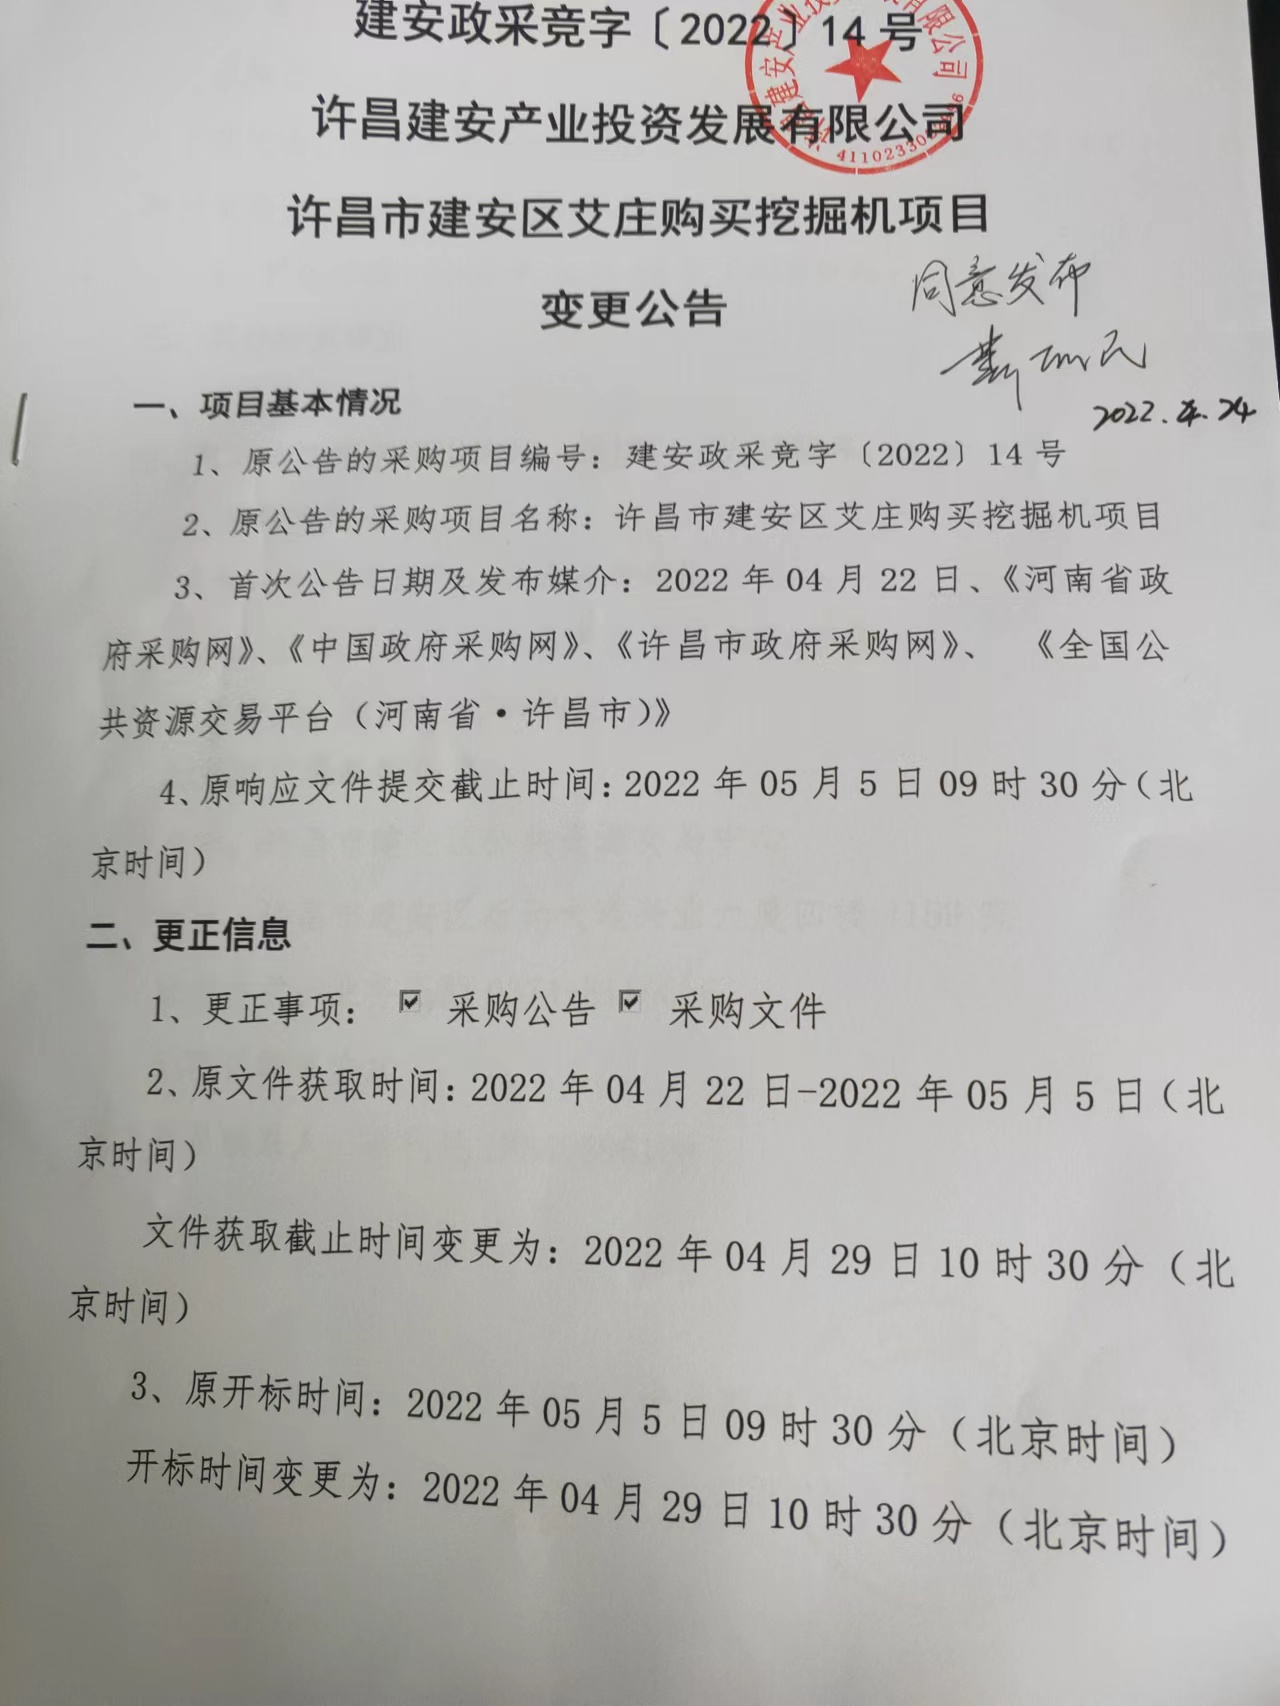 建安政采竞字〔2022〕14号
许昌建安产业投资发展有限公司
许昌市建安区艾庄购买挖掘机项目
变更公告
同意发布
2022.4.24
一、项目基本情况
1、原公告的采购项目编号：建安政采竞字〔2022〕14号
2、原公告的采购项目名称：许昌市建安区艾庄购买挖掘机项目
3、首次公告日期及发布媒介：2022年04月22日、《河南省政
府采购网》、《中国政府采购网》、《许昌市政府采购网》、 《全国公
共资源交易平台（河南省·许昌市）》
4、原响应文件提交截止时间：2022年05月5日09时30分（北
京时间）
二、更正信息
1、更正事项： ☑ 采购公告 ☑ 采购文件
2、原文件获取时间：2022年04月22日-2022年05月5日（北
京时间）
文件获取截止时间变更为：2022年04月29日10时30分（北
京时间）
3、原开标时间：2022年05月5日09时30分（北京时间）
开标时间变更为：2022年04月29日10时30分（北京时间）